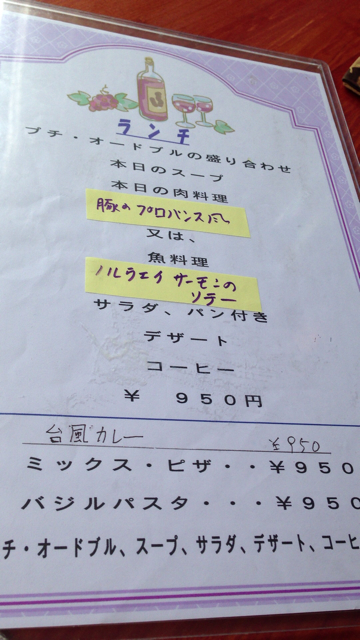 ランチ
プチ・オードブルの盛り合わせ
本日のスープ
本日の肉料理
豚のプロバンス風
又は、
魚料理
ノルウェイサーモンの
ソテー
サラダ、パン付き
デザート
コーヒー
¥ 950円
台風カレー ¥950
ミックス・ピザ・・¥950
バジルパスタ・・・¥950
チ・オードブル、スープ、サラダ、デザート、コーヒ